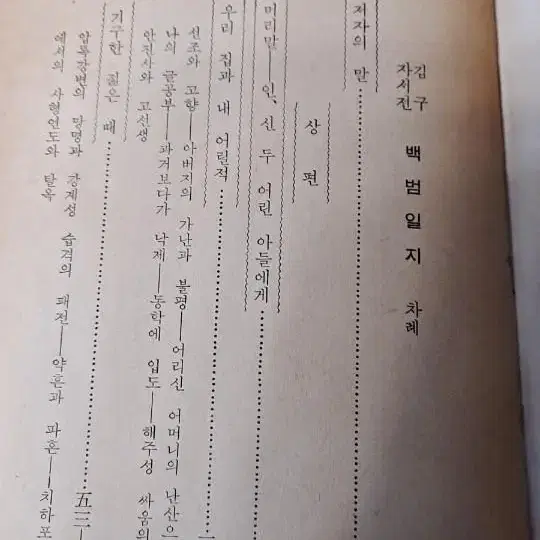 김구
자서전
백범일지 차례
저자의 말……………………
상 편
머리말──인, 신 두 어린 아들에게……
우리 집과 내 어릴적……………………一
선조와 고향──아버지의 가난과 불평──어리신 어머니의 난산으
나의 글공부──과거보다가 낙제──동학에 입도──해주성 싸움의
안진사와 고선생
기구한 젊은 때……………………五三
압록강변의 망명과 강계성 습격의 패전──약혼과 파혼──치하포
에서의 사형언도와 탈옥